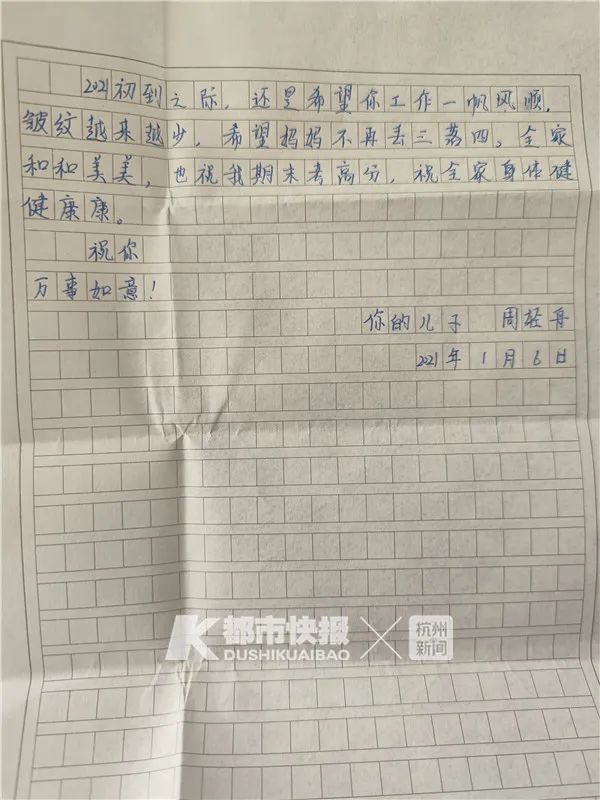 2021初到之际，还是希望你工作一帆风顺，
皱纹越来越少，希望妈妈不再丢三落四。全家
和和美美，也祝我期末考高分，祝全家身体健
健康康。
祝你
万事如意！
你的儿子 周轻舟
2021年1月6日
都市快报
DUSHIKUAIBAO
杭州
新闻